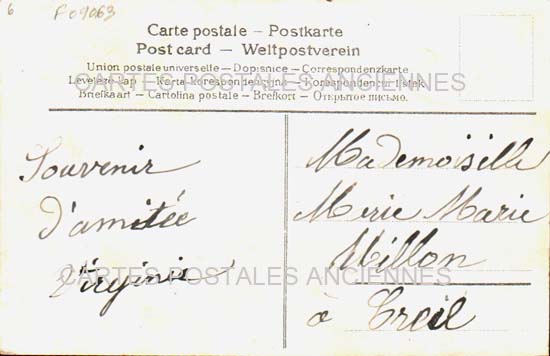 6
F09063
Carte postale – Postkarte
Post card – Weltpostverein
Union postale universelle – Dopisnice – Correspondenzkarte
Levelező-Lap – Karta korespondencyjna – Korespondencni listek
Brefkaart – Cartolina postale – Brefkort – Открытое письмо.
CARTES POSTALES ANCIENNES
Souvenir
d'amitée
Virginie
Mademoiselle
Merie Marie
Millon
à Creil
CARTES POSTALES ANCIENNES